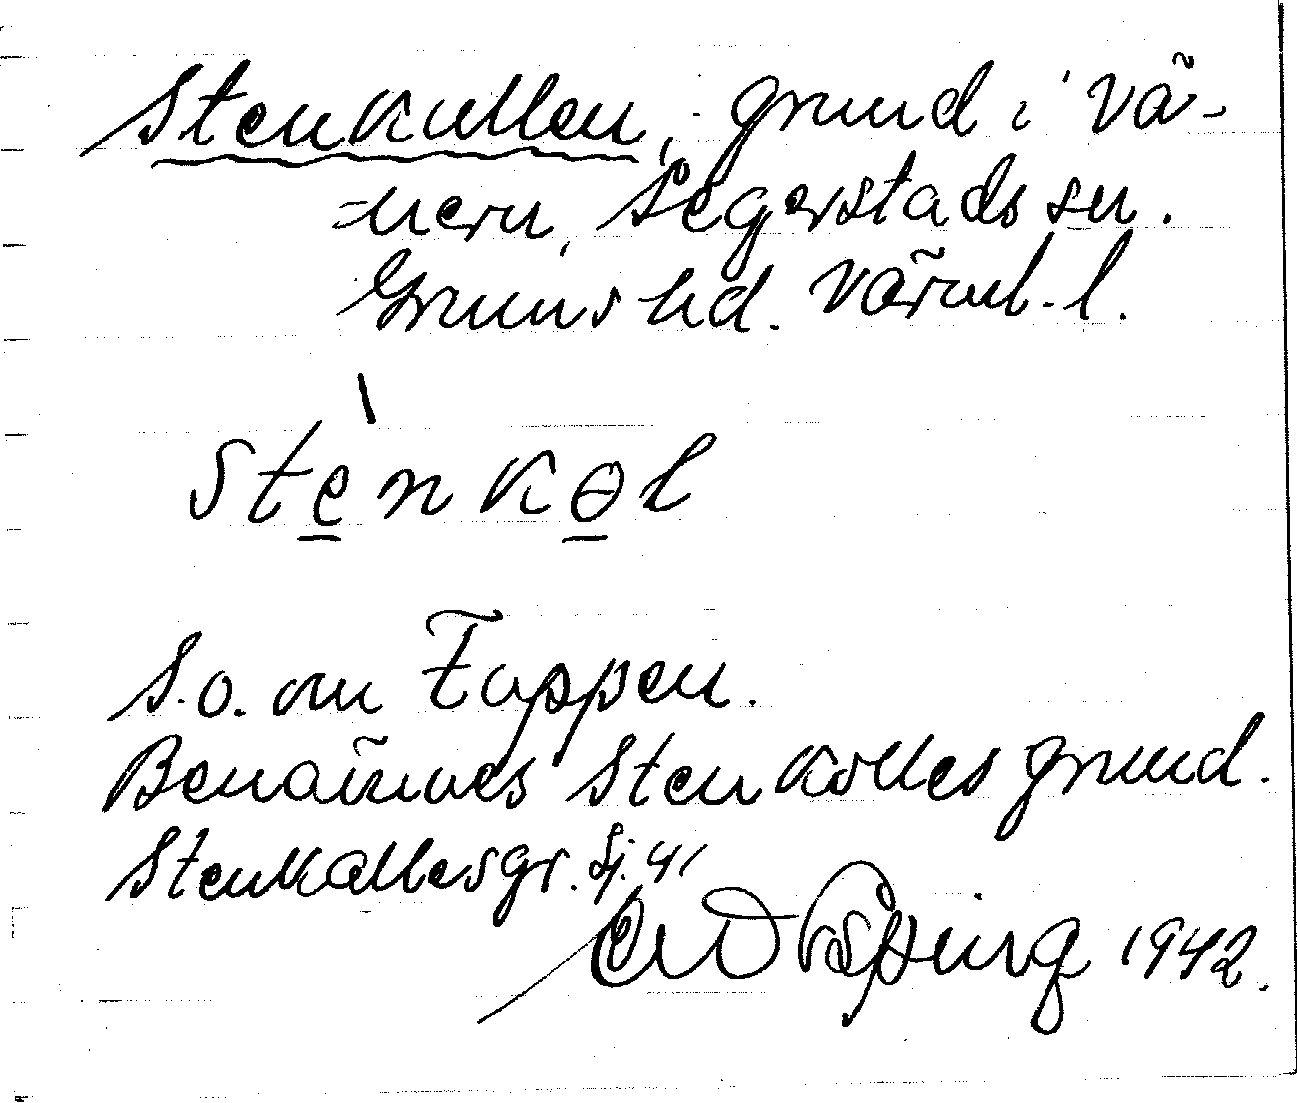 Stenkullen, grund i Vä-
-nern, Segerstads sn.
Grums hd. Värml. l.
stènkɵl
S.o. om Tappen.
Benämnes Stenkolles grund.
Stenkallesgr. Sj. 41
1942.